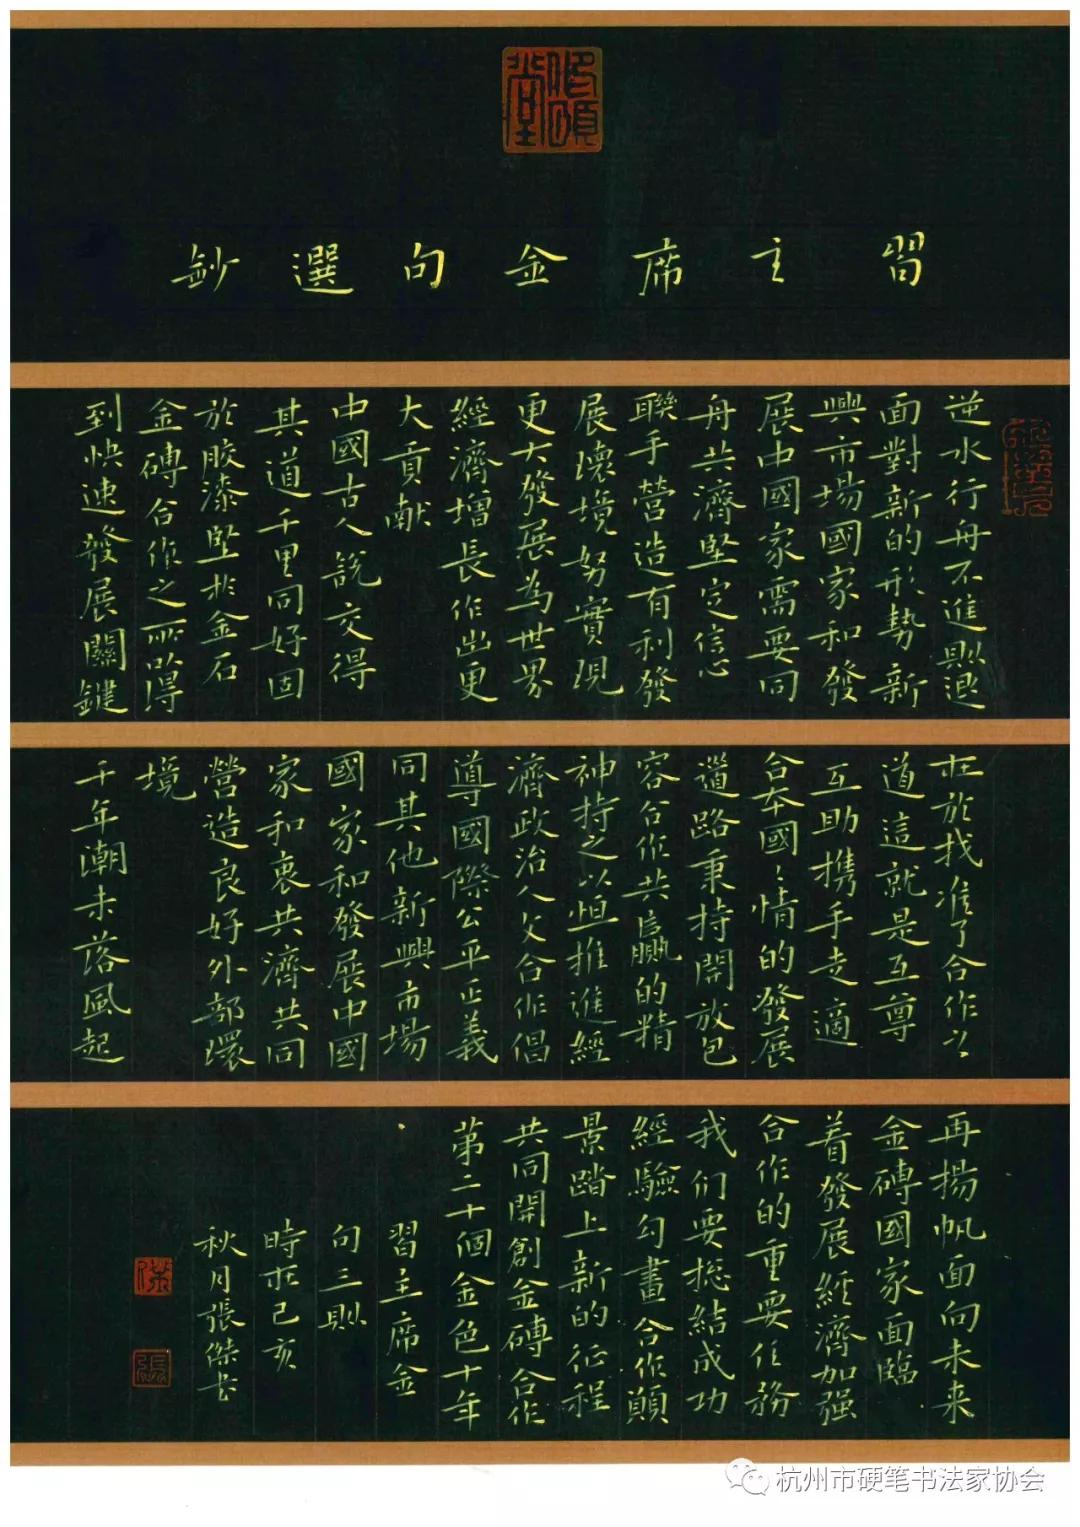 習主席金句選鈔
逆水行舟不進則退
面對新的形勢新
興市場國家和發
展中國家需要同
舟共濟堅定信心
聯手營造有利發
展環境努實現
更大發展為世界
經濟增長作出更
大貢献
中國古人説交得
其道千里同好固
於胶漆堅於金石
金磚合作之所以得
到快速發展關鍵
在於找准了合作之
道這就是互尊
互助携手走適
合本國之情的發展
道路秉持開放包
容合作共贏的精
神持之以恒推進經
濟政治人文合作倡
導國際公平正義
同其他新興市場
國家和發展中國
家和衷共濟共同
營造良好外部環
境
千年潮未落風起
再揚帆面向未来
金磚國家面臨
着發展經濟加强
合作的重要任務
我们要総結成功
經驗勾畫合作願
景踏上新的征程
共同開創金磚合作
第二十個金色十年
習主席金
句三則
時在己亥
秋月張傑書
杭州市硬笔书法家协会